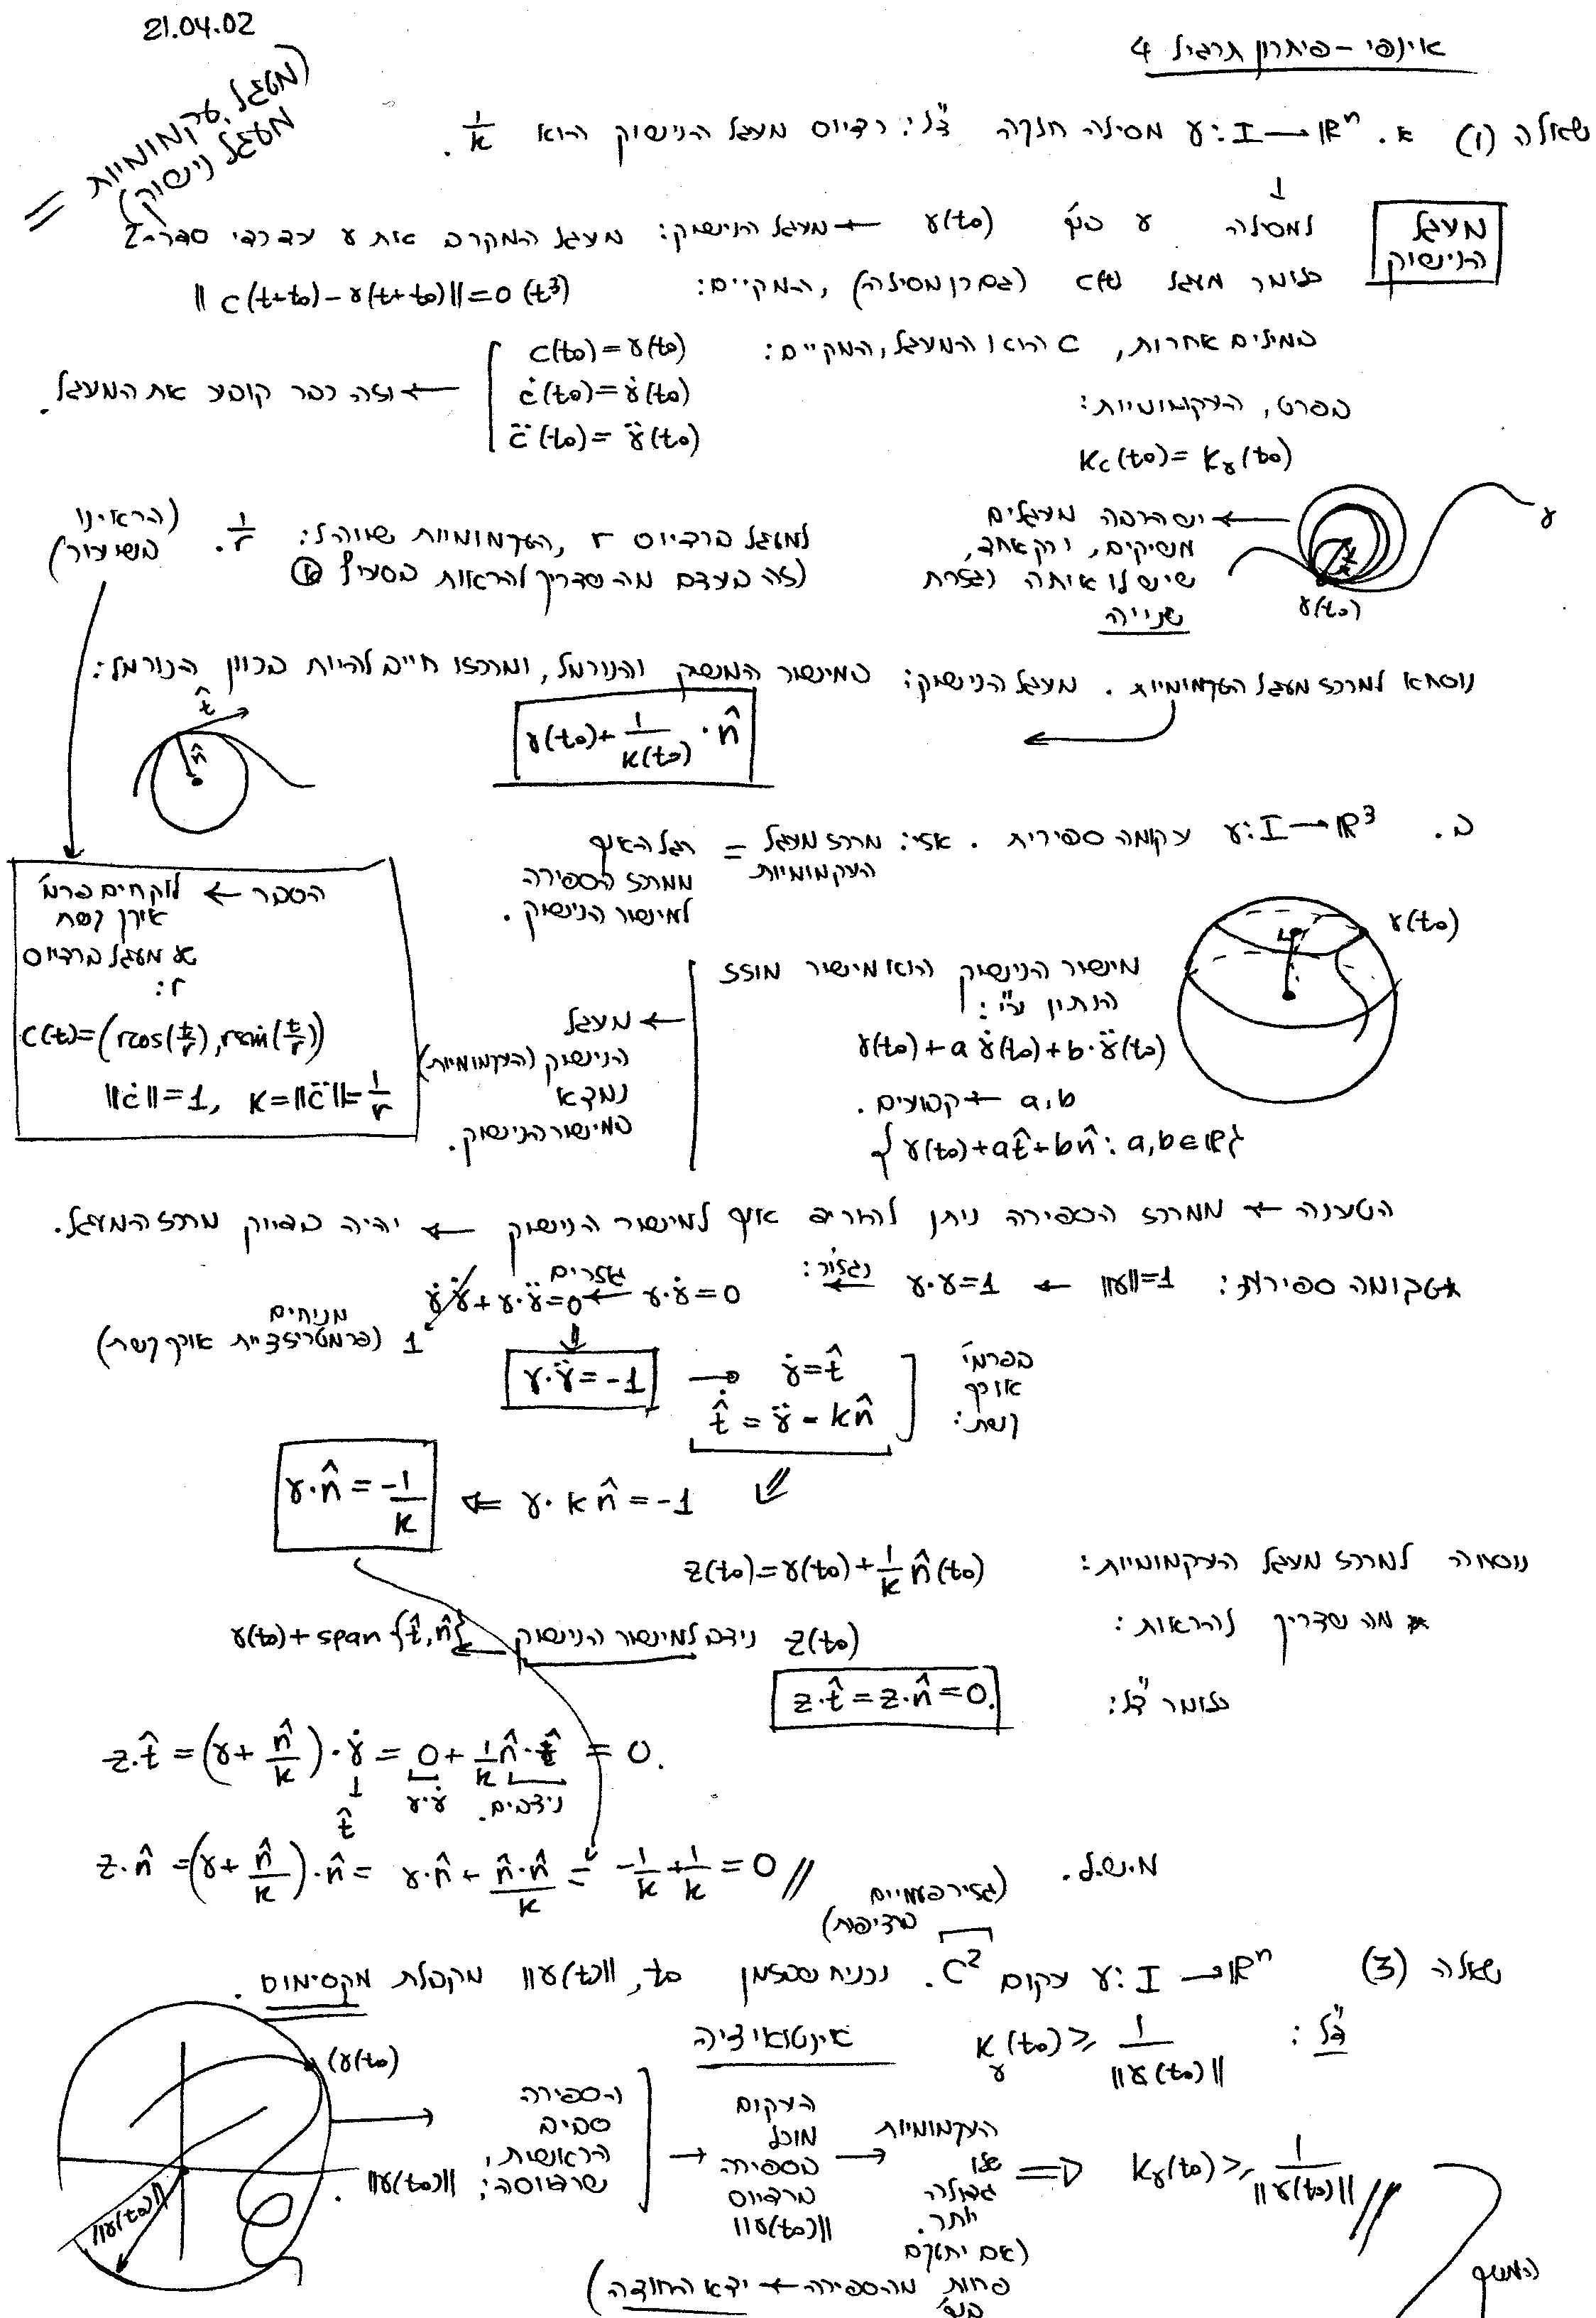 21.04.02
אינפי - פיתרון תרגיל 4
(מעגל עקמומיות = מעגל נישוק)
שאלה (1) א. γ: I → ℝⁿ מסילה חלקה צ"ל: רדיוס מעגל הנישוק הוא 1/k.
מעגל הנישוק
למסילה γ בנק' γ(t₀) ← מעגל הנישוק: מעגל המקרב את γ עד כדי סדר-2
כלומר מעגל c(t) (גם כן מסילה), המקיים: ||c(t+t₀)-γ(t+t₀)||=0(t³)
במילים אחרות, c הוא המעגל, המקיים:
c(t₀)=γ(t₀)
ċ(t₀)=γ̇(t₀)
c̈(t₀)=γ̈(t₀)
← וזה כבר קובע את המעגל.
בפרט, העקמומיות:
K_c(t₀)=K_γ(t₀)
יש הרבה מעגלים
משיקים, ורק אחד,
שיש לו איתה נגזרת
שנייה
γ
γ(t₀)
למעגל ברדיוס r, העקמומיות שווה ל: 1/r. (הראינו בשיעור)
(זה בעצם מה שצריך להראות בסעיף א)
נוסחא למרכז מעגל העקמומיות. מעגל הנישוק: במישור המשיק והנורמל, ומרכזו חייב להיות בכוון הנורמל:
γ(t₀)+1/K(t₀)·n̂
t̂
n̂
ב. γ: I → ℝ³ עקומה ספירית. אזי: מרכז מעגל העקמומיות = רגל האנך
ממרכז הספירה
למישור הנישוק.
הסבר ← לוקחים פרמ'
אורך קשת
של מעגל ברדיוס
r:
c(t)=(rcos(t/r), rsin(t/r))
||ċ||=1, K=||c̈||=1/r
γ(t₀)
מישור הנישוק הוא מישור מוזז
הנתון ע"י:
γ(t₀)+a γ̇(t₀)+b·γ̈(t₀)
a,b ← קבועים.
{γ(t₀)+at̂+bn̂: a,b∈ℝ}
← מעגל
הנישוק (העקמומיות)
נמצא
במישור הנישוק.
הטענה ← ממרכז הספירה ניתן להרים אנך למישור הנישוק ← יהיה בדיוק מרכז המעגל.
עקומה ספירית: ||γ||=1 ← γ·γ=1 נגזור: ← γ·γ̇=0 גוזרים ← γ̇·γ̇+γ·γ̈=0
1 מניחים (פרמטריזציית אורך קשת)
γ·γ̈=-1 → γ̇=t̂
t̂̇ = γ̈ = kn̂
בפרמ'
אורך
קשת:
γ·kn̂=-1 ⇐ γ·n̂=-1/k
נוסחה למרכז מעגל העקמומיות: z(t₀)=γ(t₀)+1/k n̂(t₀)
* מה שצריך להראות: z(t₀) ניצב למישור הנישוק ← γ(t₀)+span{t̂,n̂}
כלומר צ"ל: z·t̂=z·n̂=0.
z·t̂=(γ+n̂/k)·γ̇=0+1/k n̂·t̂=0.
t̂ γ·γ̇ ניצבים.
z·n̂=(γ+n̂/k)·n̂=γ·n̂+n̂·n̂/k=-1/k+1/k=0 //
מ.ש.ל.
(גזיר פעמיים ברציפות)
שאלה (3) γ: I → ℝⁿ עקום C². נניח שבזמן t₀, ||γ(t)|| מקבלת מקסימום.
צ"ל: K_γ(t₀) ≥ 1/||γ(t₀)||
אינטואיציה
(γ(t₀)
||γ(t₀)||
הספירה
סביב
הראשית,
שרדיוסה: ||γ(t₀)||.
→ העקום
מוכל
בספירה
ברדיוס
||γ(t₀)||
→ העקמומיות
שלו
גדולה
יותר.
(אם יתעקם
פחות מהספירה ← יצא החוצה)
⇒ K_γ(t₀) ≥ 1/||γ(t₀)|| //
המשך